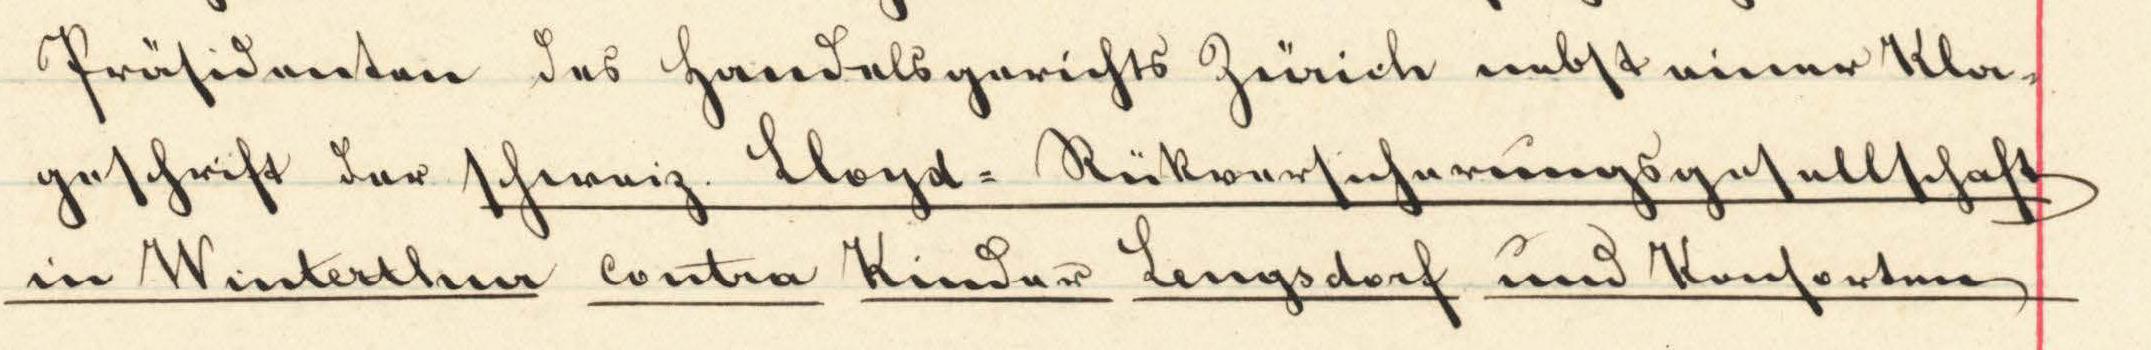 Präsidenten des Handelsgerichts Zürich nebst einer Kla-
geschrift der schweiz. Lloyd= Rükversicherungsgesellschaft
in Winterthur contra Kinder Lengsdorf und Konsorten